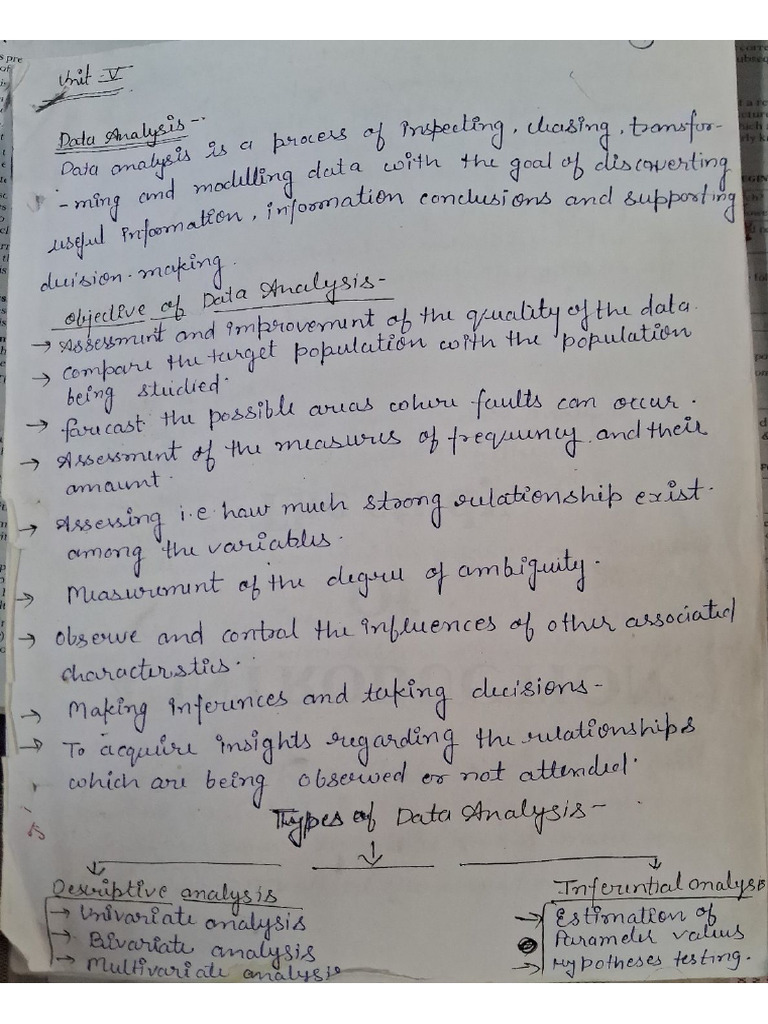 Unit - V
Data Analysis -
Data analysis is a process of inspecting, chasing, transfor-
- ming and modelling data with the goal of discoverting
useful information, information conclusions and supporting
duision-making.
Objective of Data Analysis -
→ Assessment and improvement of the quality of the data.
→ compare the target population with the population
being studied.
→ farecast the possible areas cohere faults can occur.
→ Assessment of the measures of frequency and their
amaunt.
→ Assessing i.e. haw much strong relationship exist.
among the variables.
→ Measurement of the degree of ambiguity.
→ Observe and control the influences of other associated
characteristics.
→ Making inferences and taking decisions -
→ To acquire insights regarding the relationships
which are being observed or not attended.
Types of Data Analysis -
Descriptive analysis
→ Univariate analysis
→ Bivariate analysis
→ Multivariate analysis
Inferential analysis
→ Estimation of
Parameter values
→ Hypotheses testing.